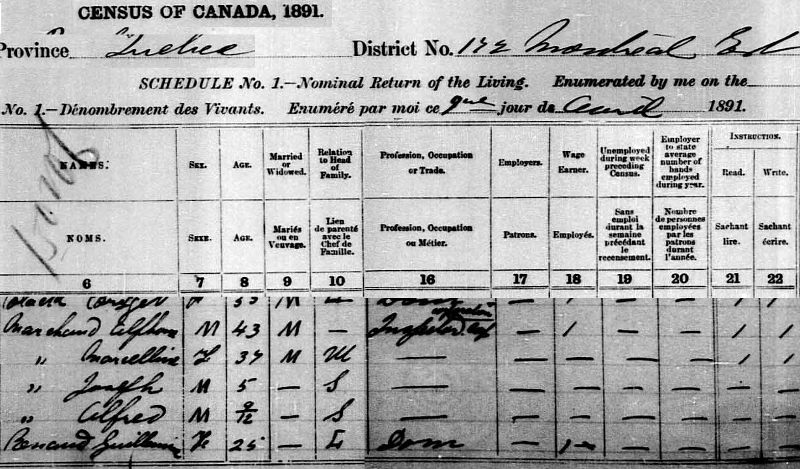 CENSUS OF CANADA, 1891.
Province Quebec District No. 172 Montréal Est
SCHEDULE No. 1.—Nominal Return of the Living. Enumerated by me on the
No. 1.—Dénombrement des Vivants. Enuméré par moi ce 9me jour de Avril 1891.
NAMES. SEX. AGE. Married or Widowed. Relation to Head of Family. Profession, Occupation or Trade. Employers. Wage Earner. Unemployed during week preceding Census. Employer to state average number of hands employed during year. INSTRUCTION. Read. Write.
NOMS. SEXE. AGE. Mariés ou en Veuvage. Lien de parenté avec le Chef de Famille. Profession, Occupation ou Métier. Patrons. Employés. Sans emploi durant la semaine précédant le recensement. Nombre de personnes employées par les patrons durant l'année. Sachant lire. Sachant écrire.
6 7 8 9 10 16 17 18 19 20 21 22
M
Marchand Alphonse M 43 M — — 1 — — 1 1
" Marcelline F 37 M — — — — — 1 1
" Joseph M 5 — S — — — — — — —
" Alfred M 9/12 — S — — — — — — —
Guillemine F 25 — Dom — 1 — — — —